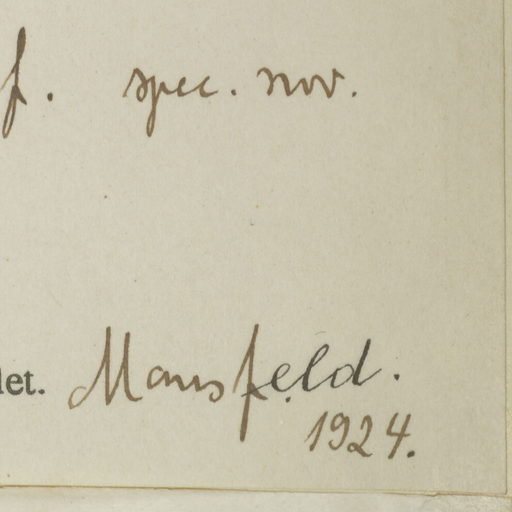 f. spec. nov.
det. Mansfeld.
1924.